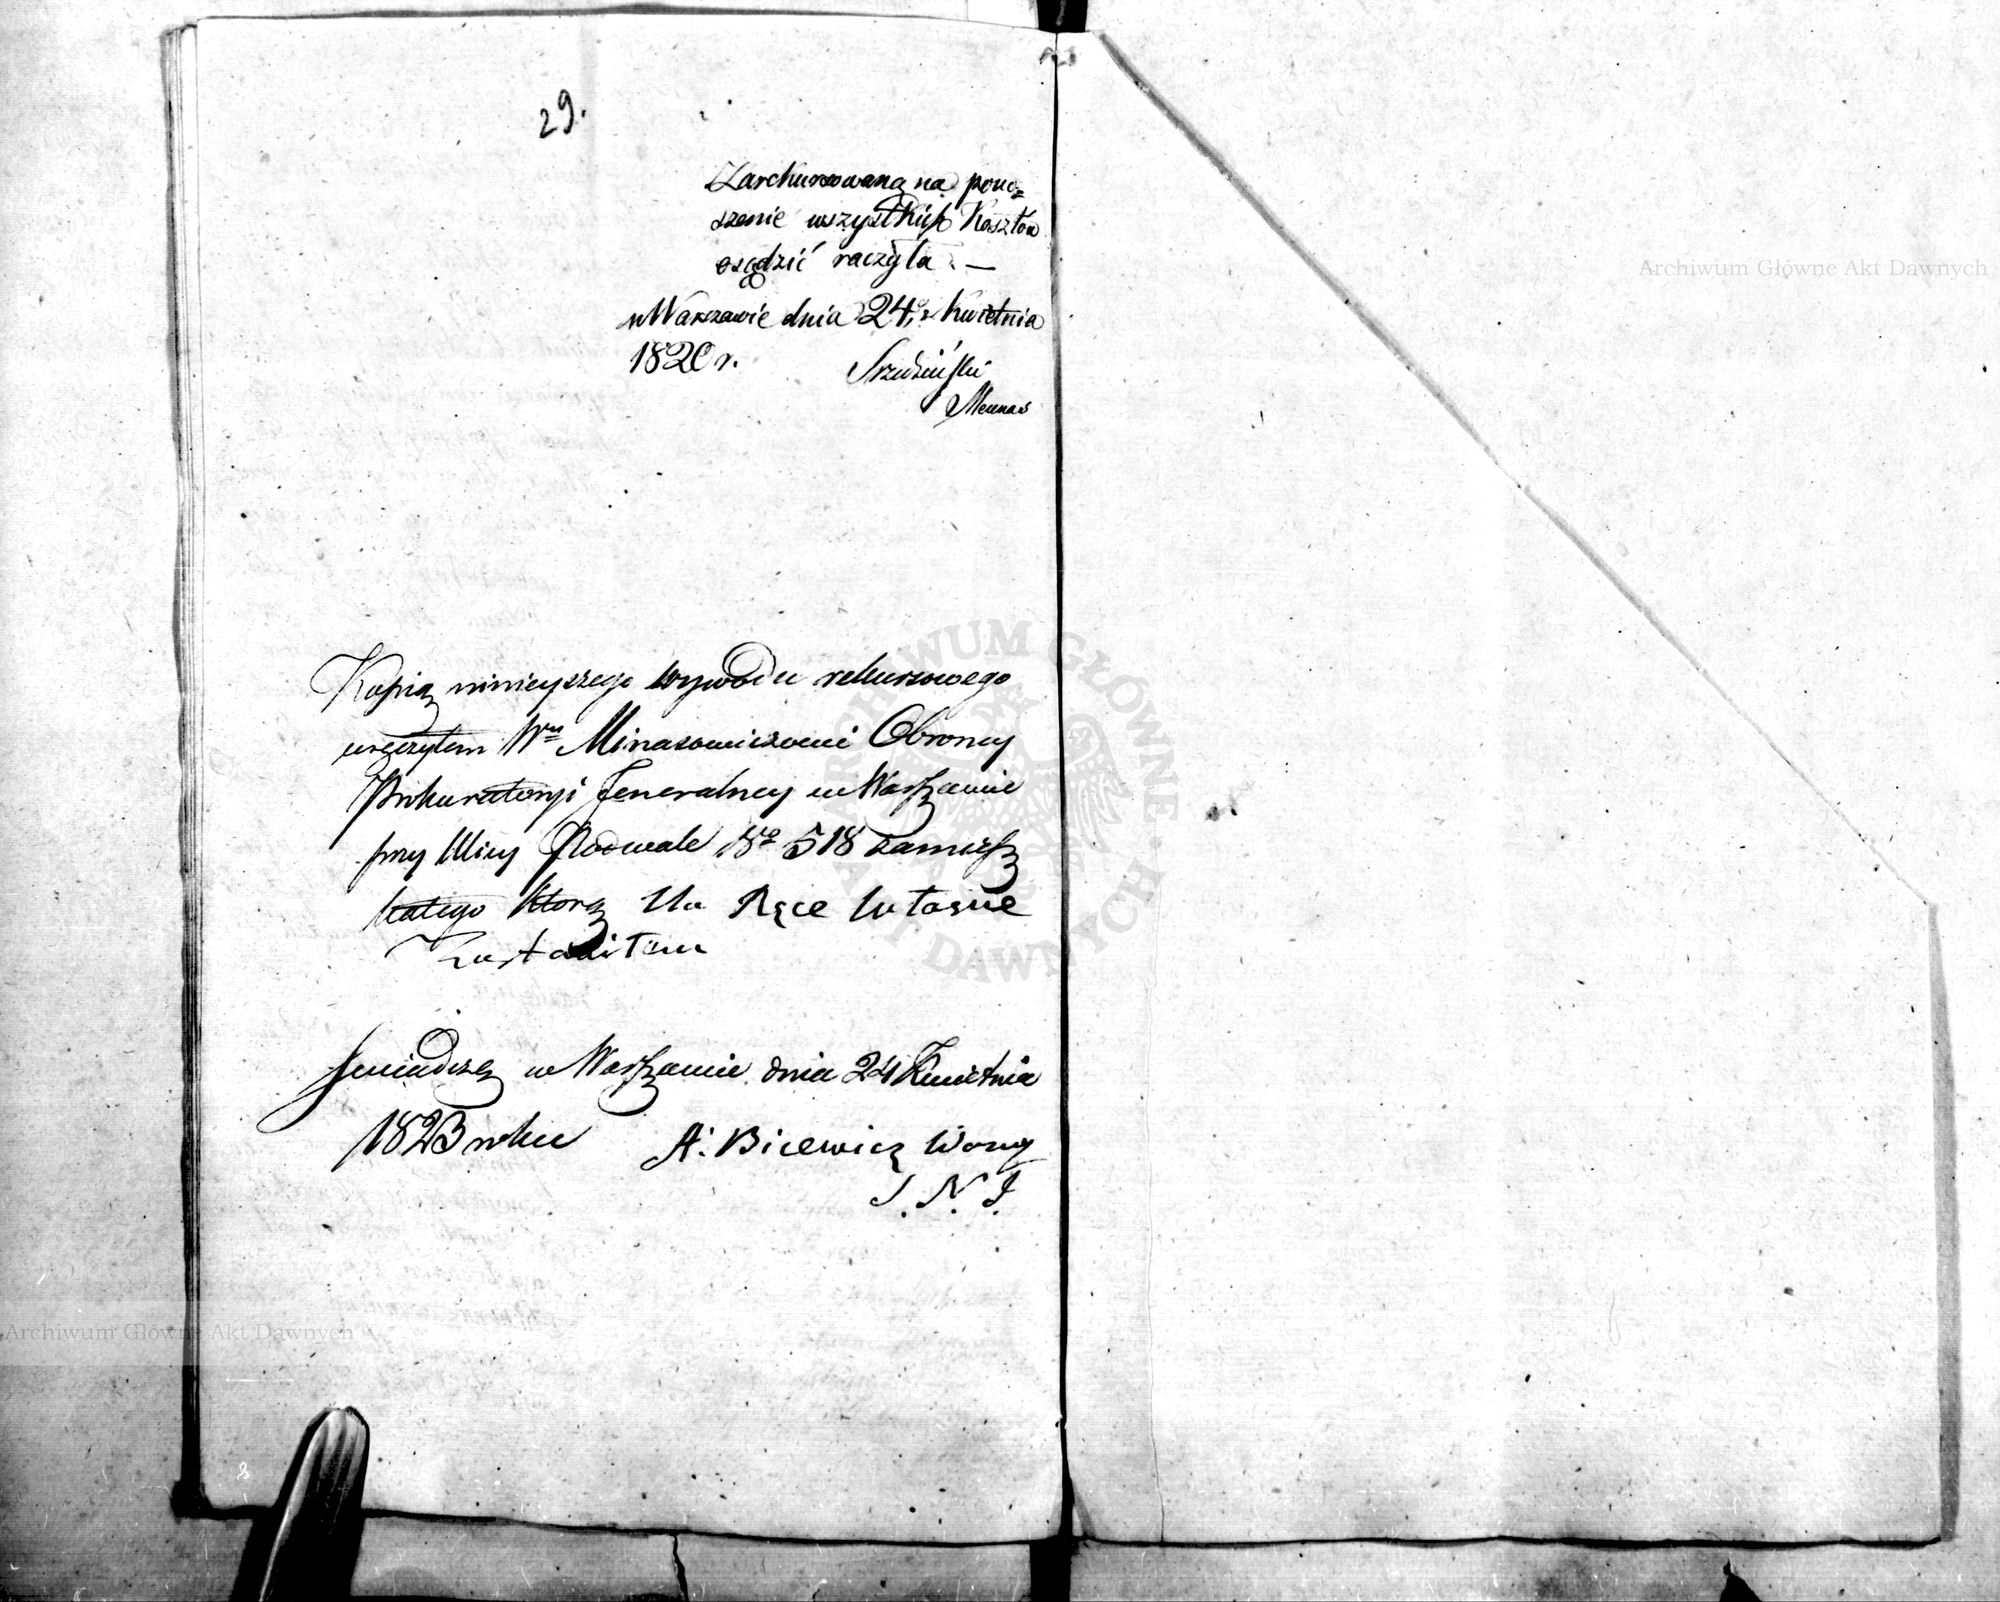 29.
Zarekursowaną na pono-
szenie wszystkich Kosztów
osądzić raczyła. —
w Warszawie dnia 24. Kwietnia
1820 r.
Mecenas
Kopią ninieyszego wywodu rekursowego
wręczyłem Wmu Minasowiczowi Obrońcy
Prokuratoryi Jeneralney w Warszawie
przy Ulicy Podwale No 518 zamiesz
kałego którą Na Ręce własne
Zostawiłem
Świadczę w Warszawie dnia 24 Kwietnia
1823 roku A. Bicewicz Woźny
S. N. J.
Archiwum Główne Akt Dawnych
ARCHIWUM GŁÓWNE AKT DAWNYCH
Archiwum Główne Akt Dawnych